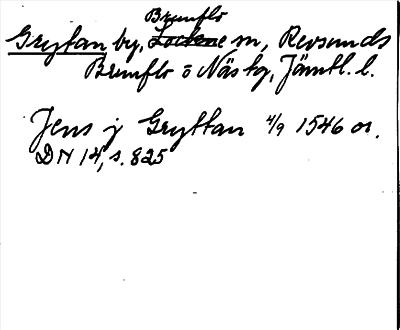 Brunflo
Grytan by, Lockne sn, Revsunds
Brunflo o Näs tg, Jämtl. l.
Jens j Gryttan 4/9 1546 or.
DN 14, s. 825